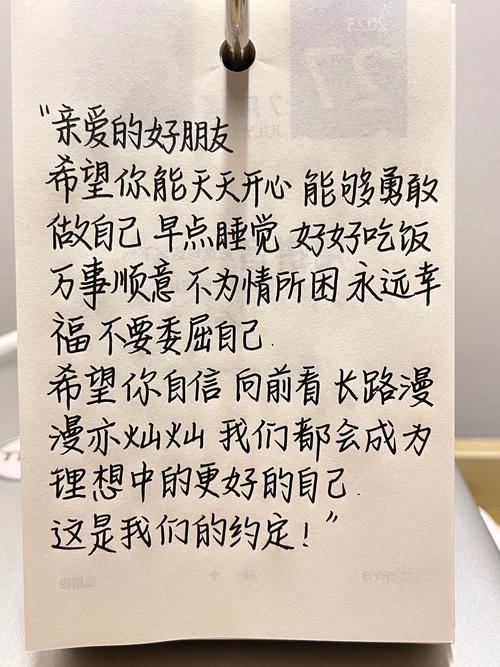 “亲爱的好朋友
希望你能天天开心 能够勇敢
做自己 早点睡觉 好好吃饭
万事顺意 不为情所困 永远幸
福 不要委屈自己.
希望你自信 向前看 长路漫
漫亦灿灿 我们都会成为
理想中的更好的自己.
这是我们的约定！”